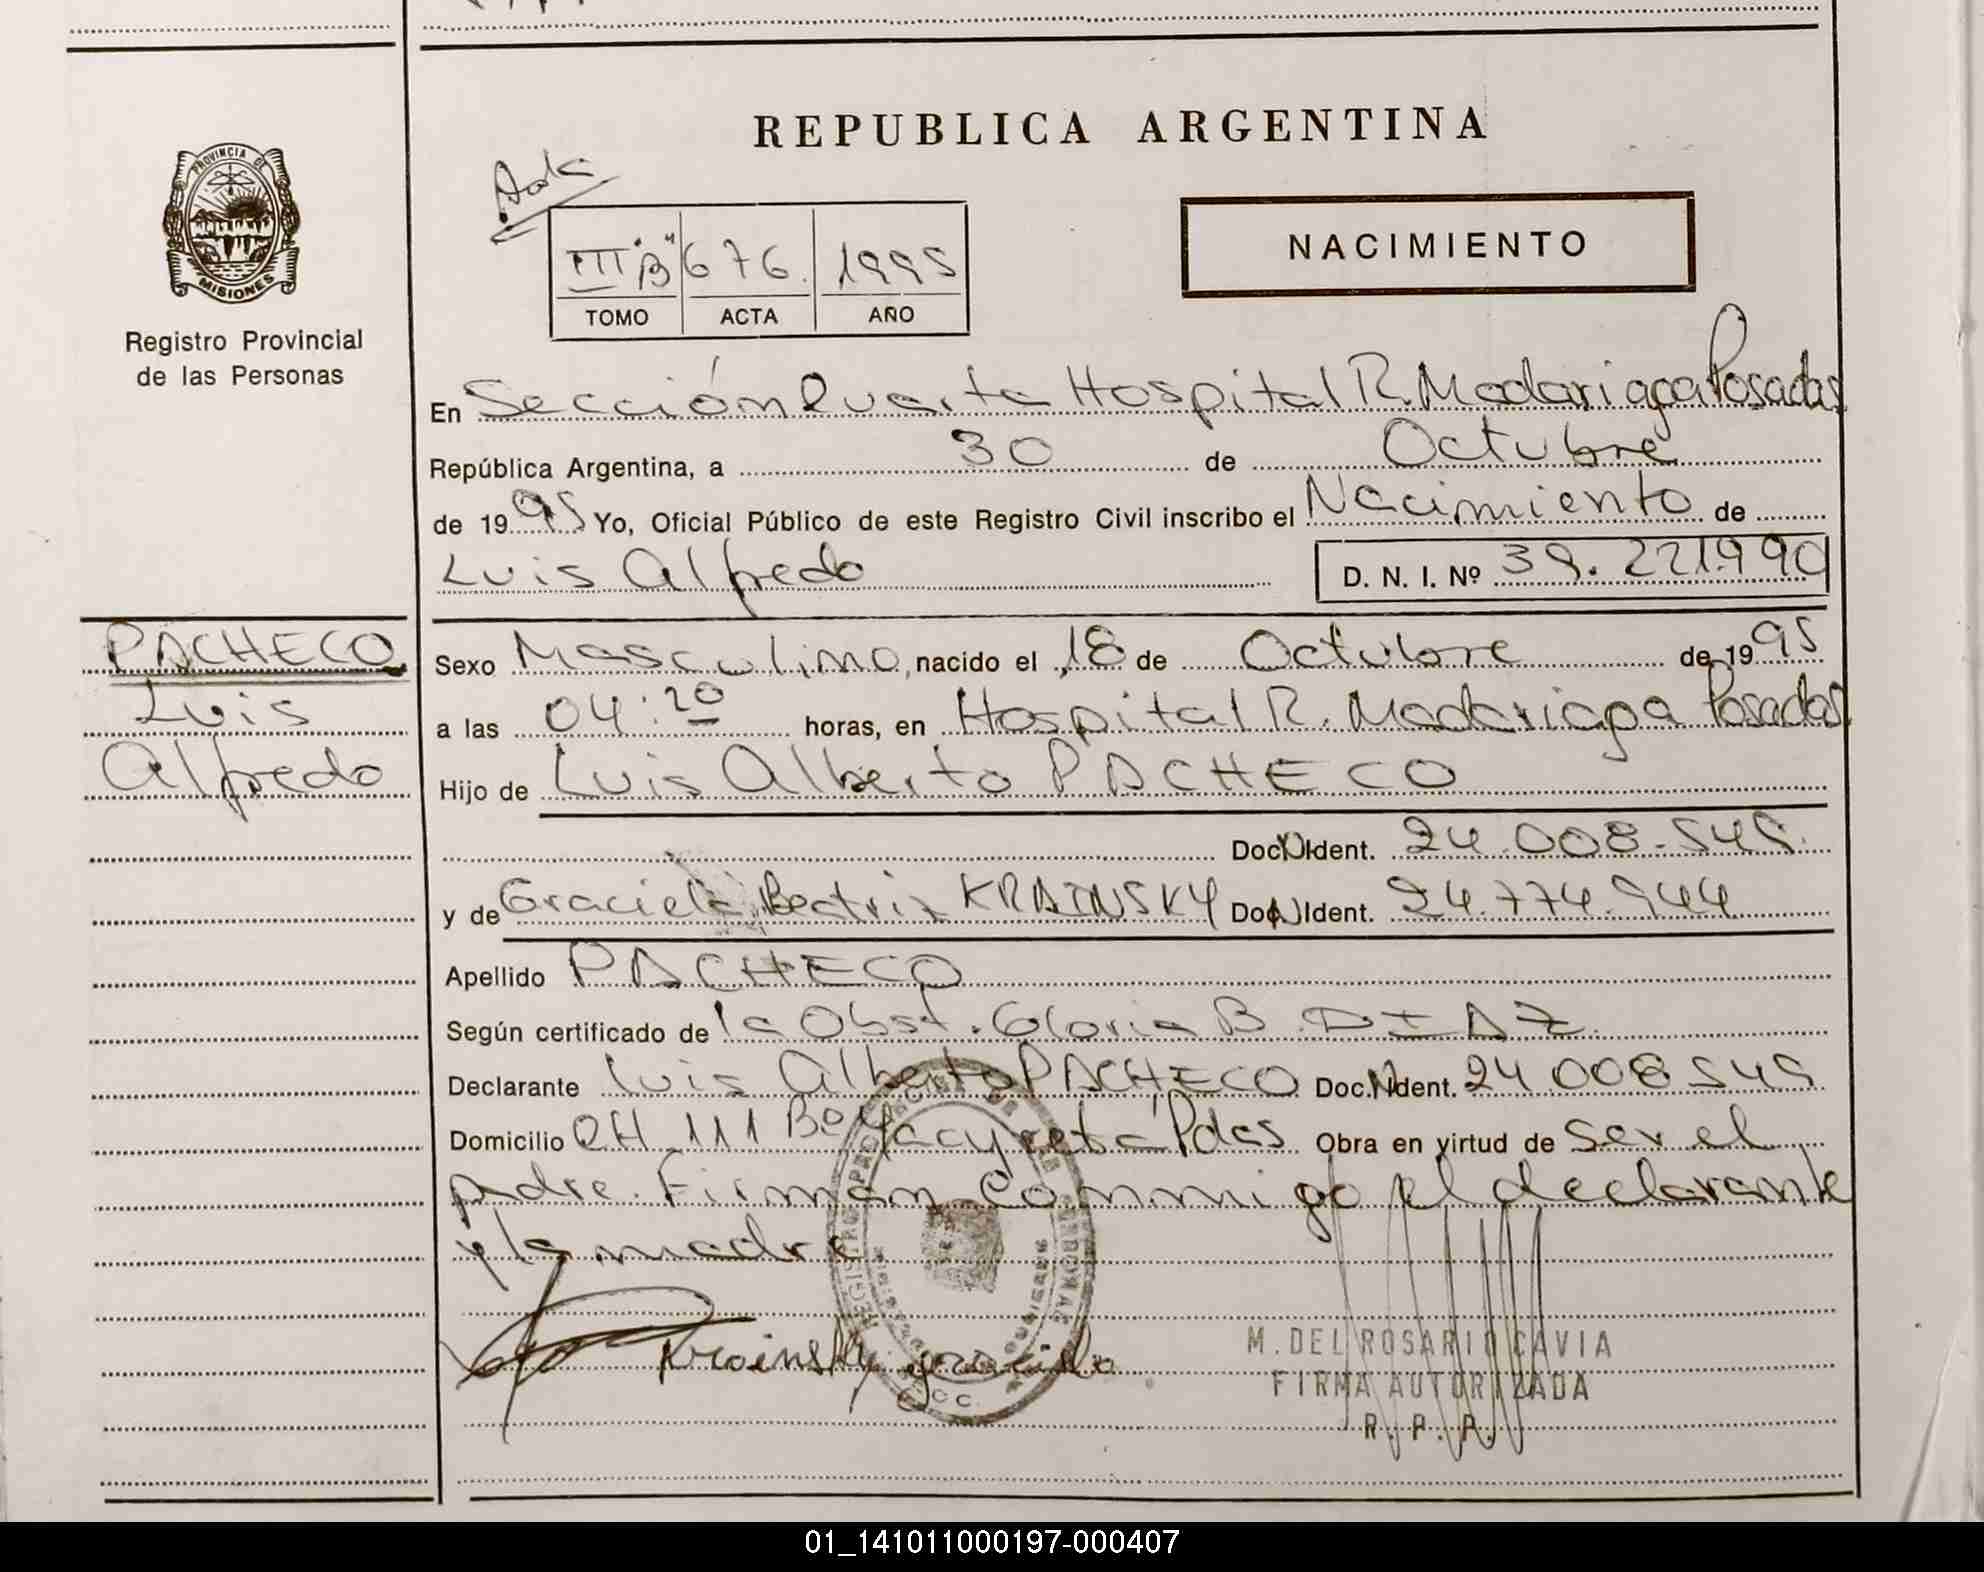 REPUBLICA ARGENTINA
PROVINCIA DE
MISIONES
Registro Provincial
de las Personas
III "B" 676. 1995
TOMO ACTA AÑO
NACIMIENTO
En Sección Quarta Hospital R. Madariaga Posadas
República Argentina, a 30 de Octubre
de 1995 Yo, Oficial Público de este Registro Civil inscribo el Nacimiento de
Luis Alfredo D. N. I. Nº 39.221990
PACHECO
Luis
Alfredo
Sexo Masculino, nacido el 18 de Octubre de 1995
a las 04:20 horas, en Hospital R. Madariaga Posadas
Hijo de Luis Alberto PACHECO
Doc. Ident. 24.008.545.
y de Graciela Beatriz KRAINSKY Doc. Ident. 24.774.944
Apellido PACHECO
Según certificado de la Obst. Gloria B. DIAZ.
Declarante Luis Alberto PACHECO Doc. Ident. 24 008 545
Domicilio CH 111 Bº Yacyretá Pdas Obra en virtud de ser el
padre. Firman conmigo el declarante
y la madre
Krainsky graciela
M. DEL ROSARIO CAVIA
FIRMA AUTORIZADA
R. P. P.
01_141011000197-000407